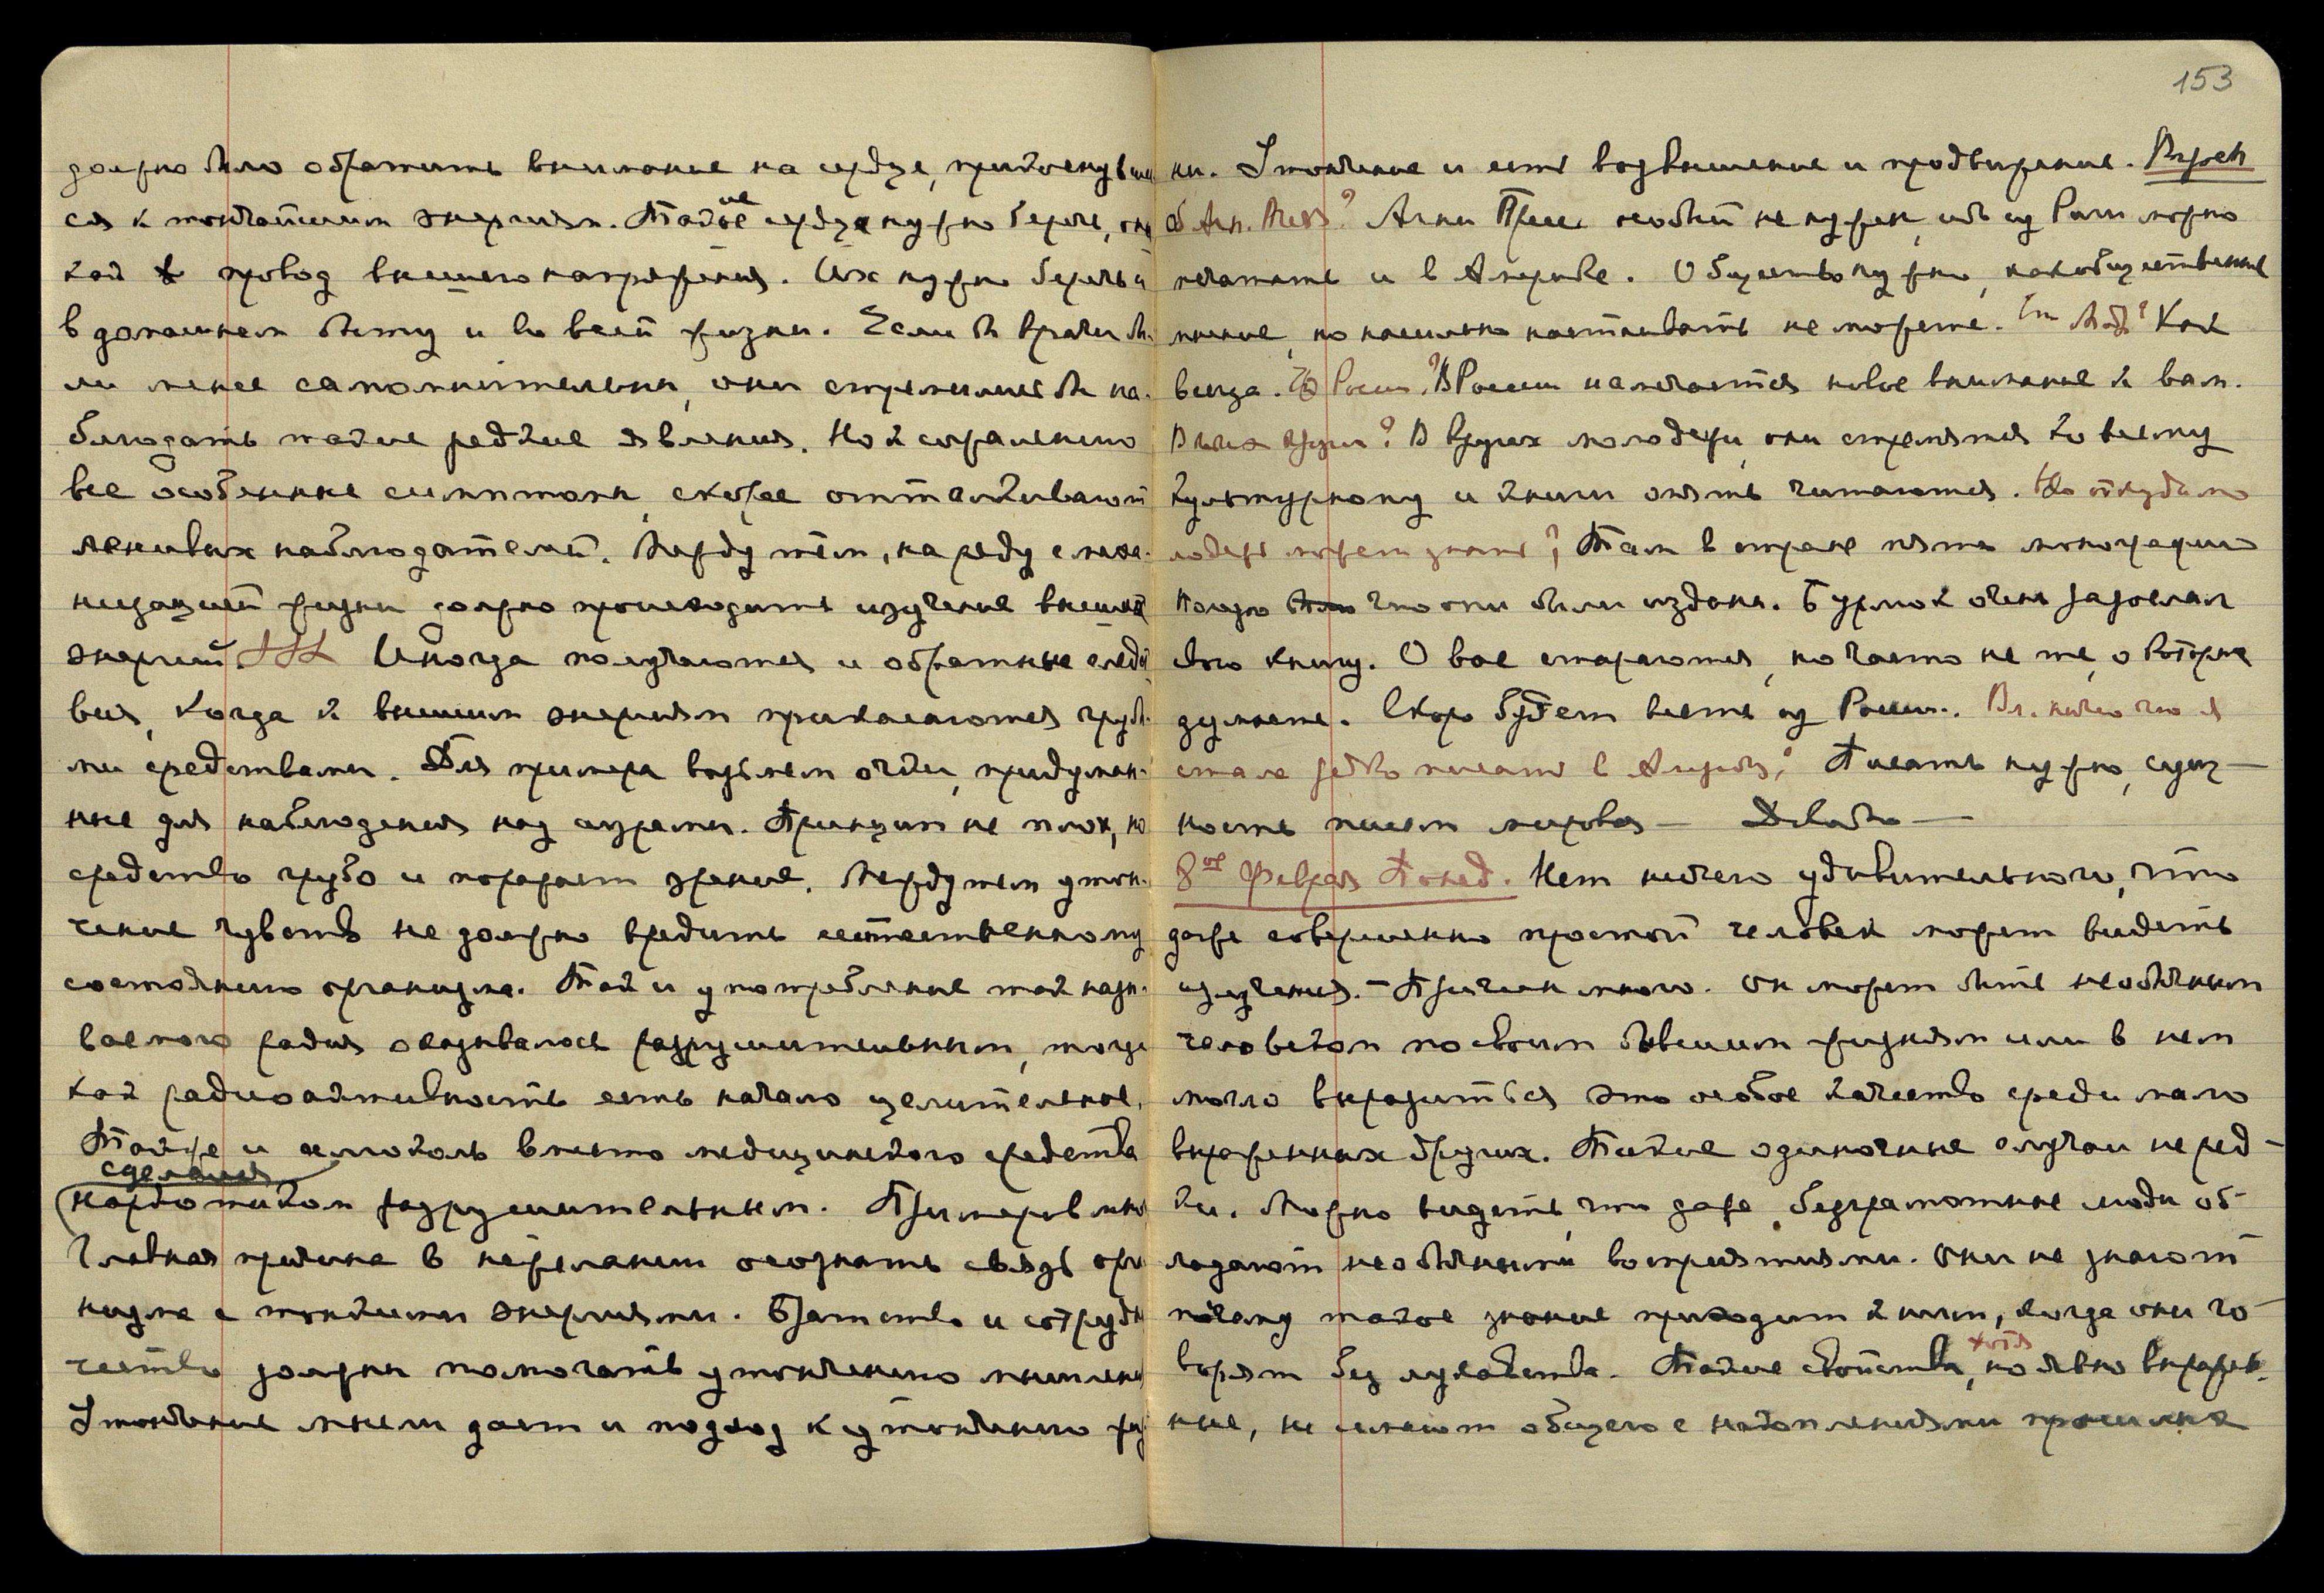 должно было обратить внимание на сердце, прикоснувшее
ся к тончайшим энергиям. Такие сердца нужно беречь, они
как провод высшего напряжения. Их нужно беречь и
в домашнем быту и во всей жизни. Если б врачи бы
ли менее самомнительны, они стремились бы на
блюдать такие редкие явления. Но к сожалению
все особенные симптомы скорее отталкивают
ленивых наблюдателей. Между тем, на ряду с меха
низацией жизни должно происходить изучение высших
энергий. Иногда получаются и обратные след
вия, когда к высшим энергиям прикасаются грубы
ми средствами. Для примера возьмем очки, придуман
ные для наблюдения над аурами. Принцип не плох, но
средство грубо и поражает зрение. Между тем утон
чение чувств не должно вредить естественному
состоянию организма. Так и употребление так назы
ваемого радия оказывалось разрушительным, тогда
как радиоактивность есть начало целительное.
Также и алкоголь вместо медицинского средства
сделался
наркотиком разрушительным. Примеров много
Главная причина в нежелании осознать связь орга
низма с тонкими энергиями. Братство и сотрудни
чество должны помогать утончению мышления
Утончение мысли дает и подход к утончению жиз
153
ни. Утончение и есть возвышение и продвижение.
Анни нужен, ибо из Риги можно
печатать и в Америке. Общество нужно, как общественное
мнение, но насильно настаивать не можете. Как
всегда. О России? В России намечается новое внимание к вам.
В каких кругах? В кругах молодежи, они стремятся ко всему
культурному и книги опять читаются. Но откуда мо
лодежь может знать? Там в стране пять монографий
Полезно что они были изданы. Бурлюк очень задержал
свою книгу. О вас стараются, но часто не те, о которых
думаете. Скоро будет весть из России. Вл. ничего что я
стала редко писать в Америку? Писать нужно, сущ-
ность писем мировая — Довольно —
8ое Февраля Понед. Нет ничего удивительного, что
даже совершенно простой человек может видеть
излучения. – Причин много. Он может быть необычным
человеком по своим бывшим жизням или в нем
могло выразиться это особое качество среди мало
выраженных других. Такие одиночные случаи не ред-
ки. Можно видеть, что даже безграмотные люди об-
ладают необычными восприятиями. Они не знают
почему такое знание приходит к ним, когда они го-
хотя
ворят без лукавства. Такие свойства, но явно выражен
ные, не имеют общего с накоплениями прошлых